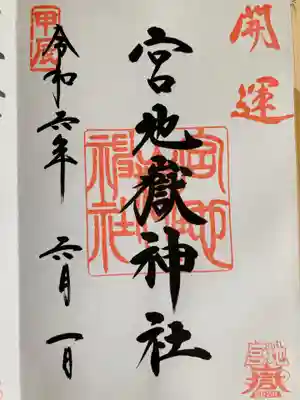 開運
宮地嶽神社
令和六年 六月一日
甲辰
宮地
嶽